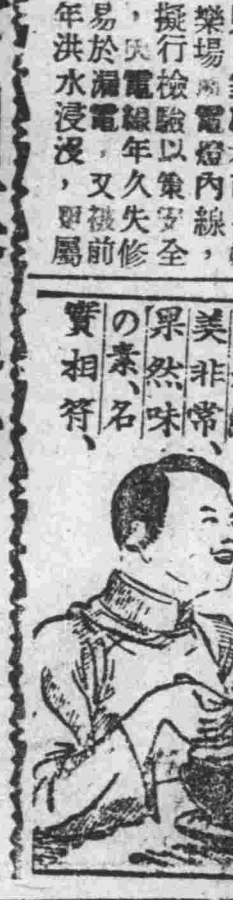 樂場電燈內線，
擬行檢驗以策安全
，電線年久失修
易於漏電，又被前
年洪水浸沒，更屬
美非常、
果然味
の素、名
實相符、